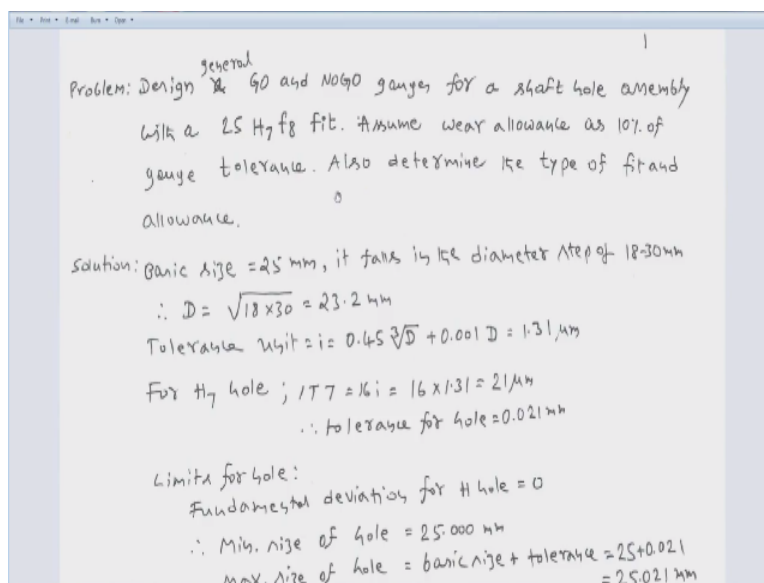 File Print E-mail Burn Open
1
general
Problem: Design GO and NOGO gauges for a shaft hole assembly
with a 25 H7 f8 fit. Assume wear allowance as 10% of
gauge tolerance. Also determine the type of fit and
allowance.
Solution: Basic size = 25 mm, it falls in the diameter step of 18-30mm
∴ D = √18×30 = 23.2 mm
Tolerance unit = i = 0.45 ∛D + 0.001 D = 1.31 µm
For H7 hole ; IT7 = 16i = 16 × 1.31 = 21 µm
∴ tolerance for hole = 0.021 mm
Limits for hole:
Fundamental deviation for H hole = 0
∴ Min. size of hole = 25.000 mm
Max. size of hole = basic size + tolerance = 25+0.021
= 25.021 mm